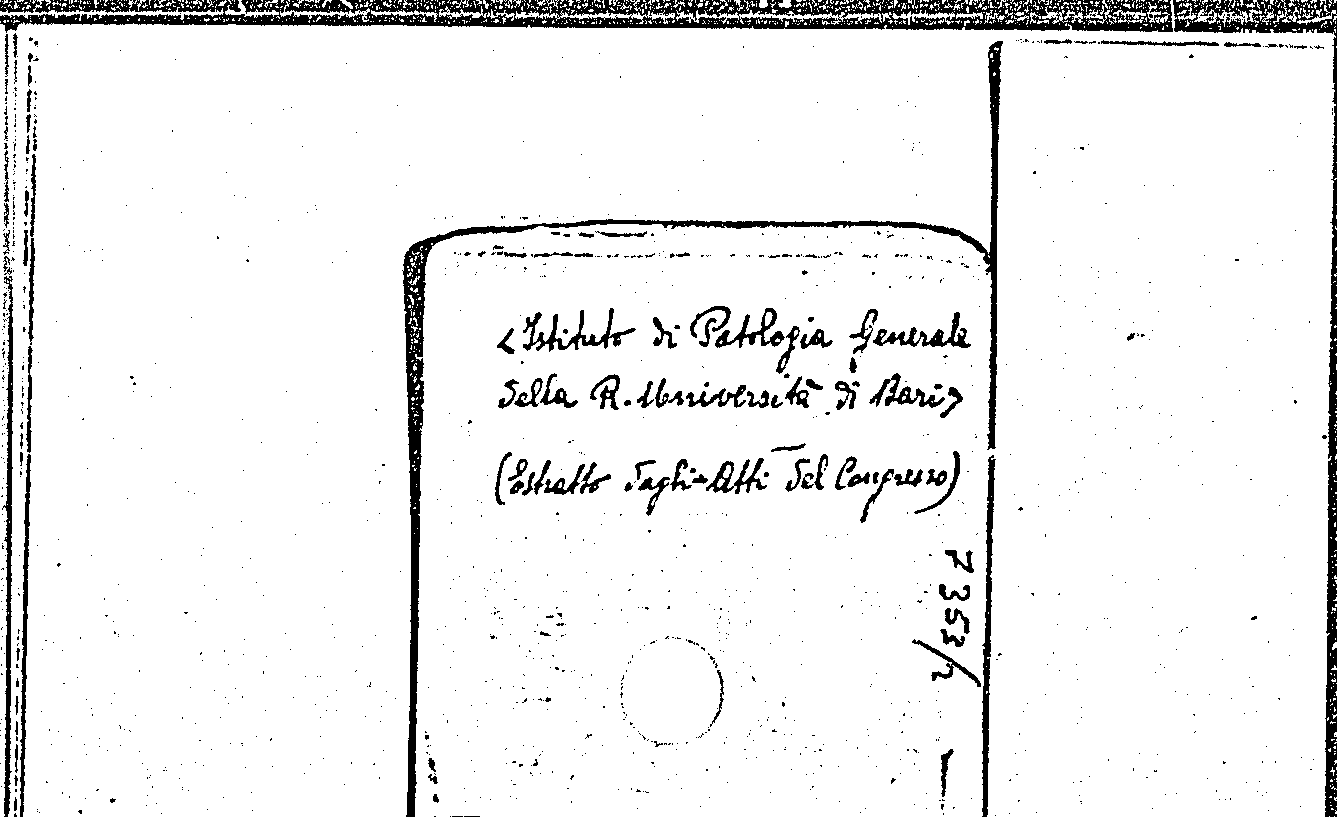 <Istituto di Patologia Generale
della R. Università di Bari>
(Estratto dagli Atti del Congresso)
7353/2